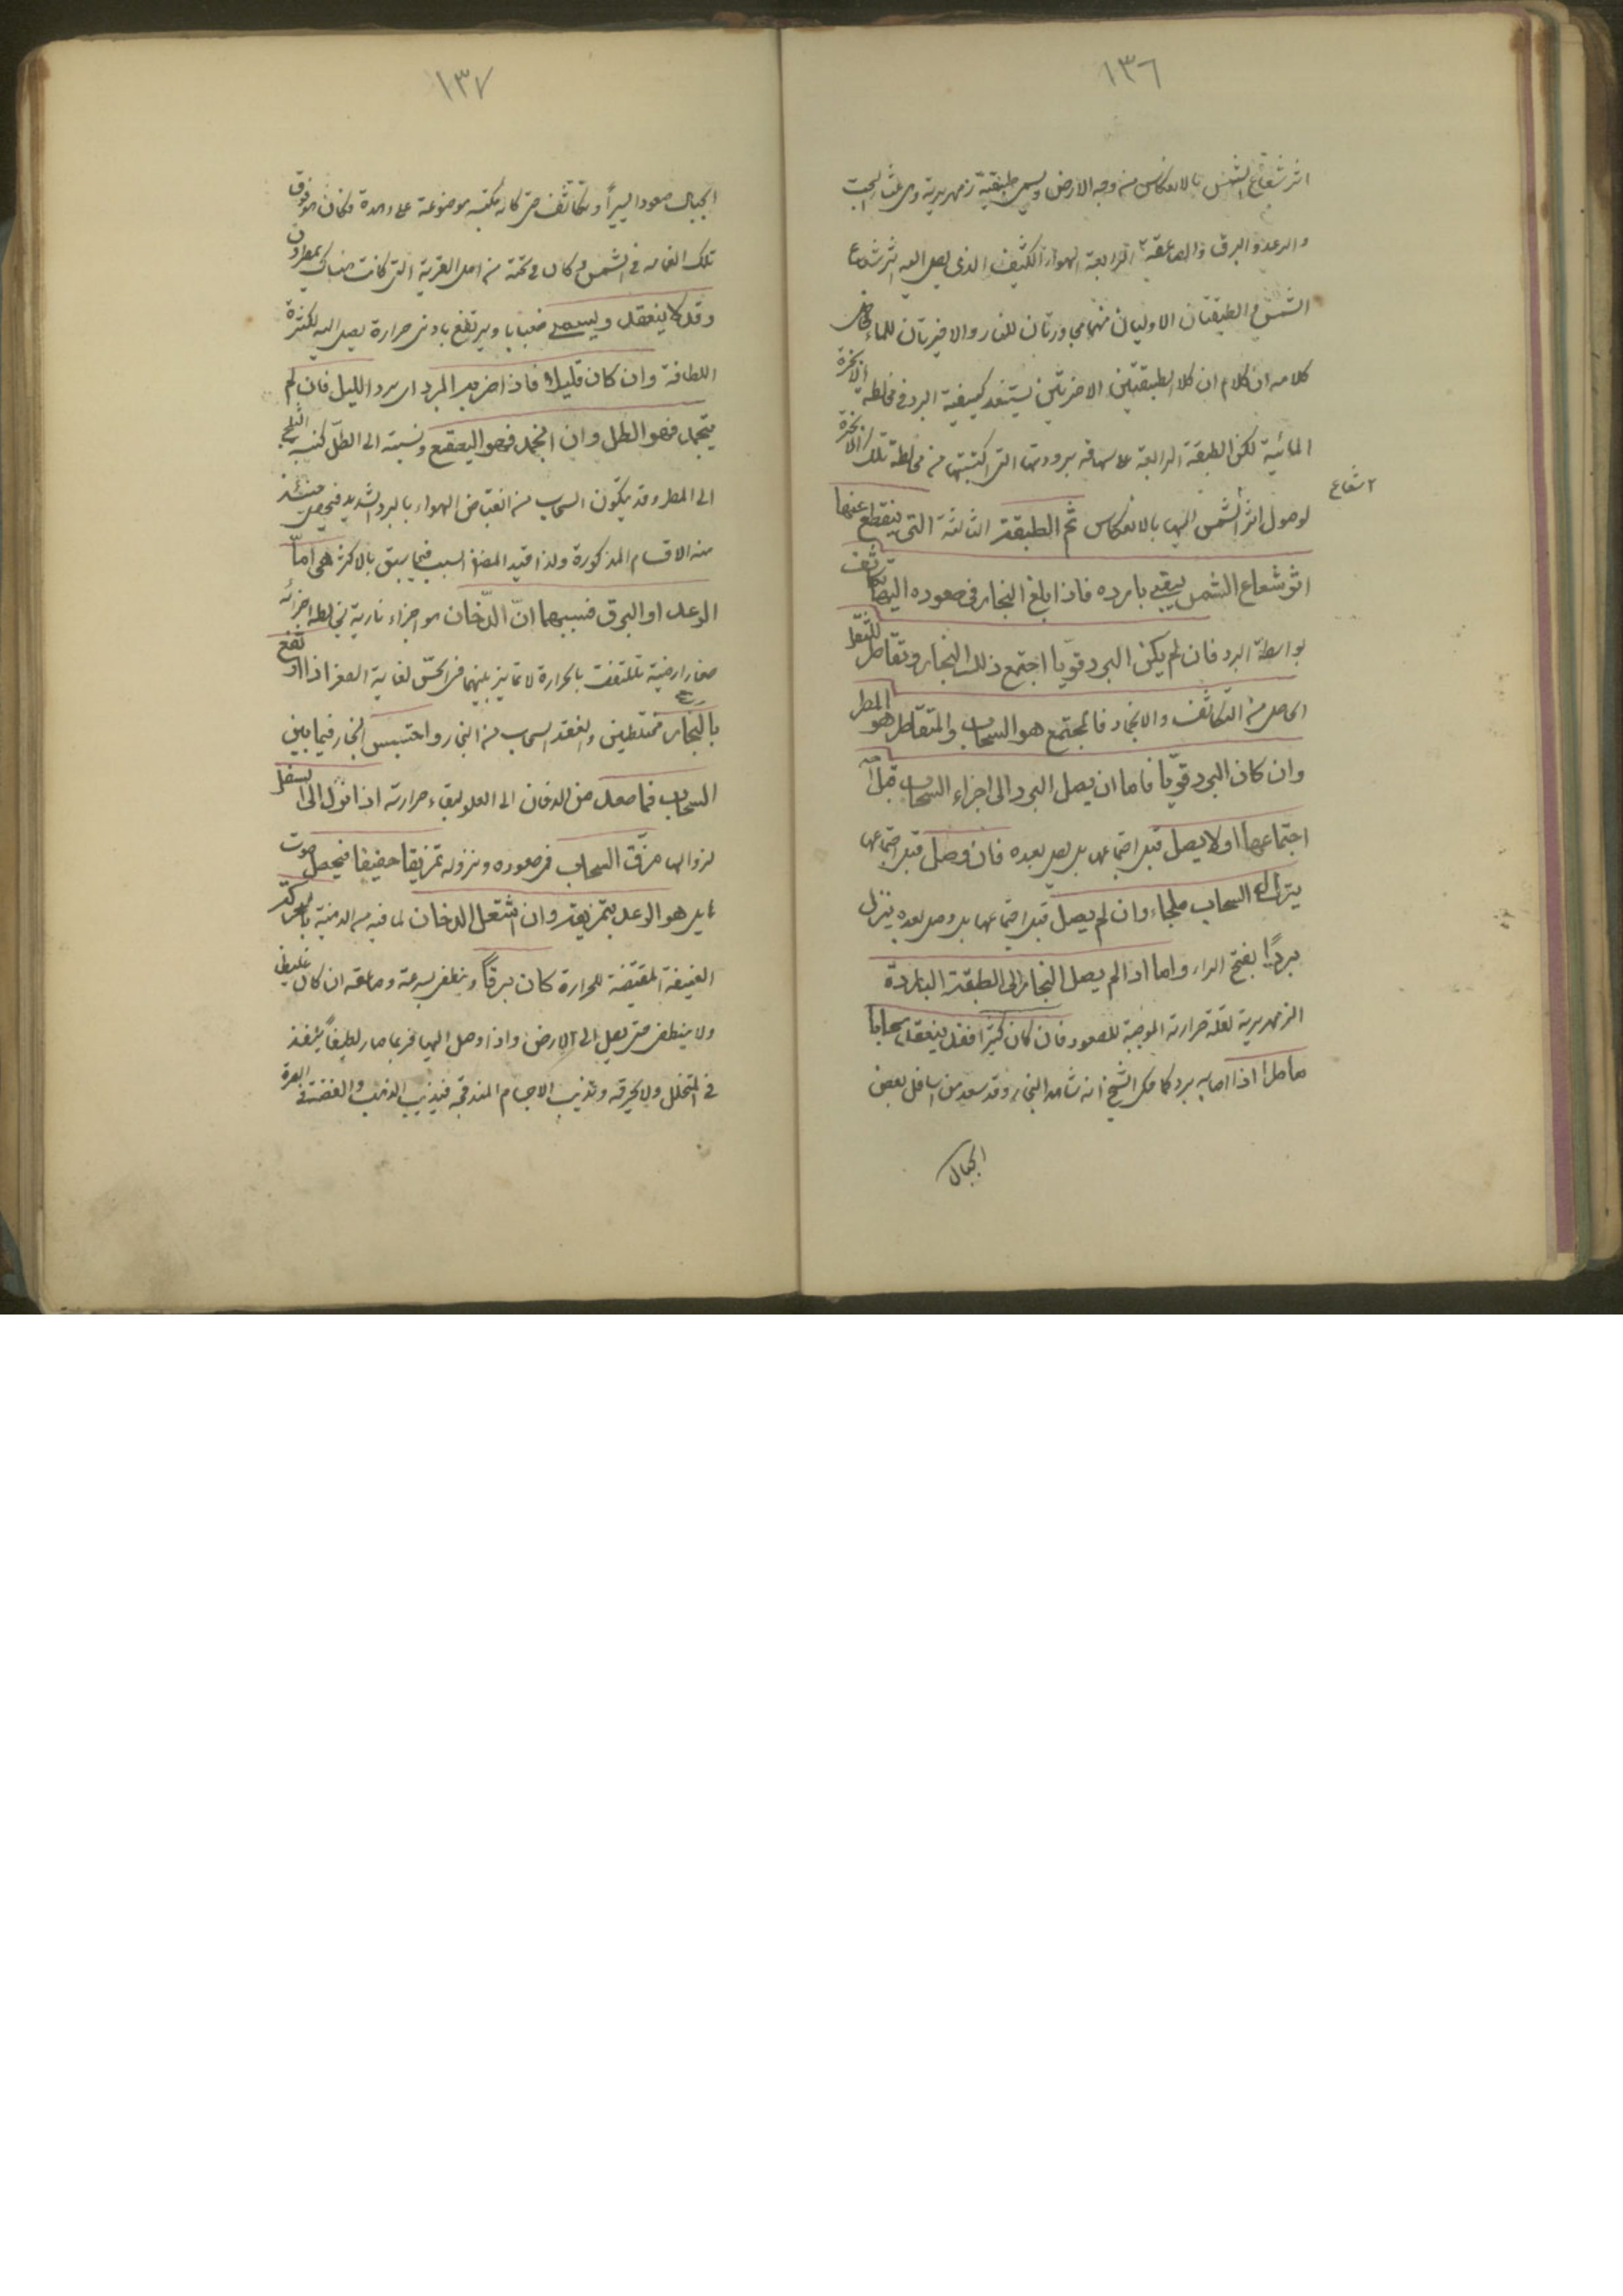 ١٣٦
اثر شعاع الشمس بالانعكاس من وجه الارض ويسمى طبقية زمهريرية وهي منشأ السحب
والرعد والبرق والصاعقة الرابعة الهواء الكثيف الذى يصل اليه اثر شعاع
الشمس والطبقتان الاوليان منها مجاورتان للنار والاخيرتان للماء
كلامه ان كلام ان كلا الطبقتين الاخيرتين يستفيد كيفية البرد من مخالطة الابخرة
المائية لكن الطبقة الرابعة برودتها التى اكتسبتها من مخالطة تلك الابخرة
٢ شعاع
لوصول اثر الشمس اليها بالانعكاس ثم الطبقة الثالثة التى ينقطع عنها
اثر شعاع الشمس يبقى باردة فاذا بلغ البخار فى صعوده اليها تكاثف
بواسطة البرد فان لم يكن البرد قويا اجتمع ذلك البخار وتقاطر للثقل
الحاصل من التكاثف والانجماد فالمجتمع هو السحاب والمتقاطر هو المطر
وان كان البرد قويّا فاما ان يصل البرد الى اجزاء السحاب قبل
اجتماعها اولا يصل قبل اجتماعها بل يصل بعده فان وصل قبل اجتماعها
ينزل السحاب ثلجا وان لم يصل قبل اجتماعها بل وصل بعده ينزل
بردًا بفتح الراء واما اذا لم يصل البخار الى الطبقة الباردة
الزمهريرية لقلة حرارته الموجبة للصعود فان كان كثيرا فقد ينعقد سحابا
ماطرا اذا اصابه برد كما حكى الشيخ انه شاهد البخار وقد صعد من اسافل بعض
الجبال
١٣٧
الجبال صعودا يسيرًا وتكاثف حتى كانه مكبة موضوعة على وهدة وكان هو فوق
تلك الغمامة فى الشمس وكان من تحته من اهل القرية التى كانت هناك يمطرون
وقد لا ينعقد ويسمى ضبابا ويرتفع بادنى حرارة يصل اليه لكثرة
اللطافة وان كان قليلا فاذا ضربه البرد اى برد الليل فان لم
يتجمد فهو الطل وان انجمد فهو الصقيع ونسبته الى الطل كنسبة الثلج
الى المطر وقد يتكون السحاب من انقباض الهواء بالبرد الشديد فيحصل حينئذ
منه الاقسام المذكورة ولذا قيد المصنف السبب فيما سبق بالاكثر هى امّا
الرعد او البرق فسببهما انّ الدّخان هو اجزاء نارية يخالطها اجزاء
صغار ارضية تلطفت بالحرارة لا تمايز بينهما فى الحسّ لغاية الصغر اذا ارتفع
بالبخار مختلطين وانعقد السحاب من البخار واحتبس الدخان فيما بين
السحاب فما صعد من الدخان الى العلو لبقاء حرارته اذا نزل الى السفل
لزوالها مزّق السحاب فى صعوده ونزوله تمزيقا عنيفا فيحصل صوت
هايل هو الرعد بتمزيقه وان اشتعل الدخان لما فيه من الدهنية بالحركة
العنيفة المقتضية للحرارة كان برقًا وينطفى بسرعة وصاعقة ان كان غليظا
ولا ينطفى حتى يصل الى الارض واذا وصل اليها فربما صار لطيفًا ينفذ
فى المتخلل ولا يحرقه ويذيب الاجسام المندمجة فيذيب الذهب والفضة فى الصرة